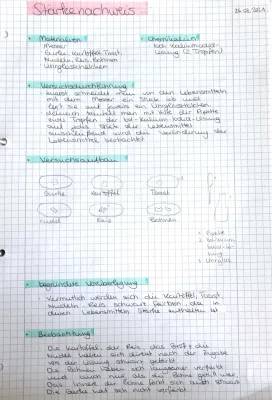 Stärkenachweis
• Materialien
Messer
Gurke, Kartoffel, Toast,
Nudeln, Reis, Bohnen
Uhrglasschälchen
• Chemikalien
Lösung (2 Tropfen)
• Versuchsdurchführung
zuerst schneidet man von den Lebensmitteln
mit dem Messer ein Stück ab und
legt sie auf jeweils ein Uhrglasschälchen
danach man mit Hilfe der Pipette
Tropfen der Iod-Kalium Iodid-Lösung
auf jedes Stück der Lebensmittel
anschließend wird die Veränderung der
Lebensmittel beobachtet
• Versuchsaufbau
Gurke Kartoffel Toast
Nudel Reis Bohnen
• begründete Vorüberlegung
Vermutlich werden sich die Kartoffel, Toast,
Nudeln, Reis schwarz färben, da in
diesen Lebensmitteln Stärke enthalten ist
• Beobachtung
Die Kartoffel, der Reis, das Brot, die
Nudel haben sich direkt nach der Zugabe
von der Lösung schwarz gefärbt
Die Bohnen haben sich langsamer verfärbt
und auch nur als die Bohne
Das Innere der Bohne färbt sich auch schwarz
Die Gurke hat sich nicht verfärbt